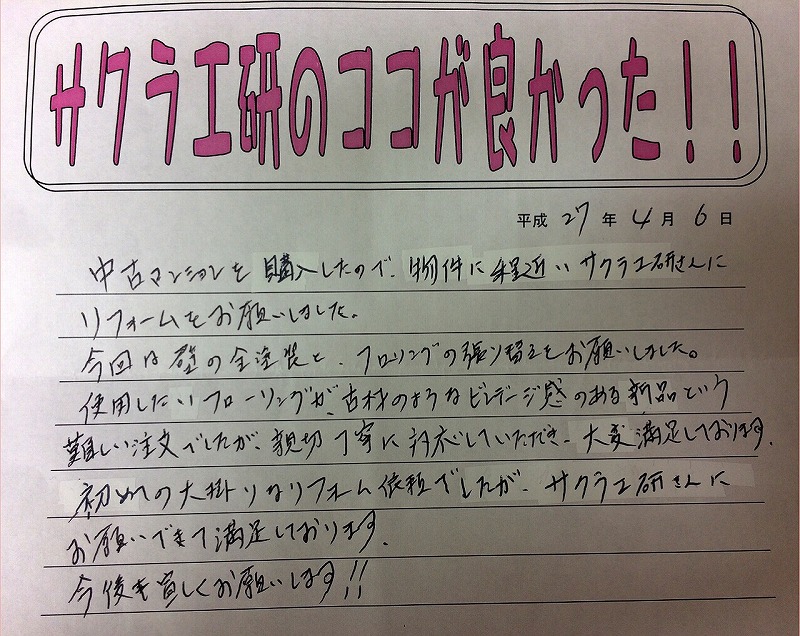 サクラ工研のココが良かった!!
平成27年4月6日
中古マンションを購入したので、物件に程近いサクラ工研さんに
リフォームをお願いしました。
今回は壁の全塗装と、フローリングの張り替えをお願いしました。
使用したいフローリングが、古材のようなビンテージ感のある新品という
難しい注文でしたが、親切丁寧に対応していただき、大変満足しております。
初めての大掛りなリフォーム依頼でしたが、サクラ工研さんに
お願いできて満足しております。
今後も宜しくお願いします!!